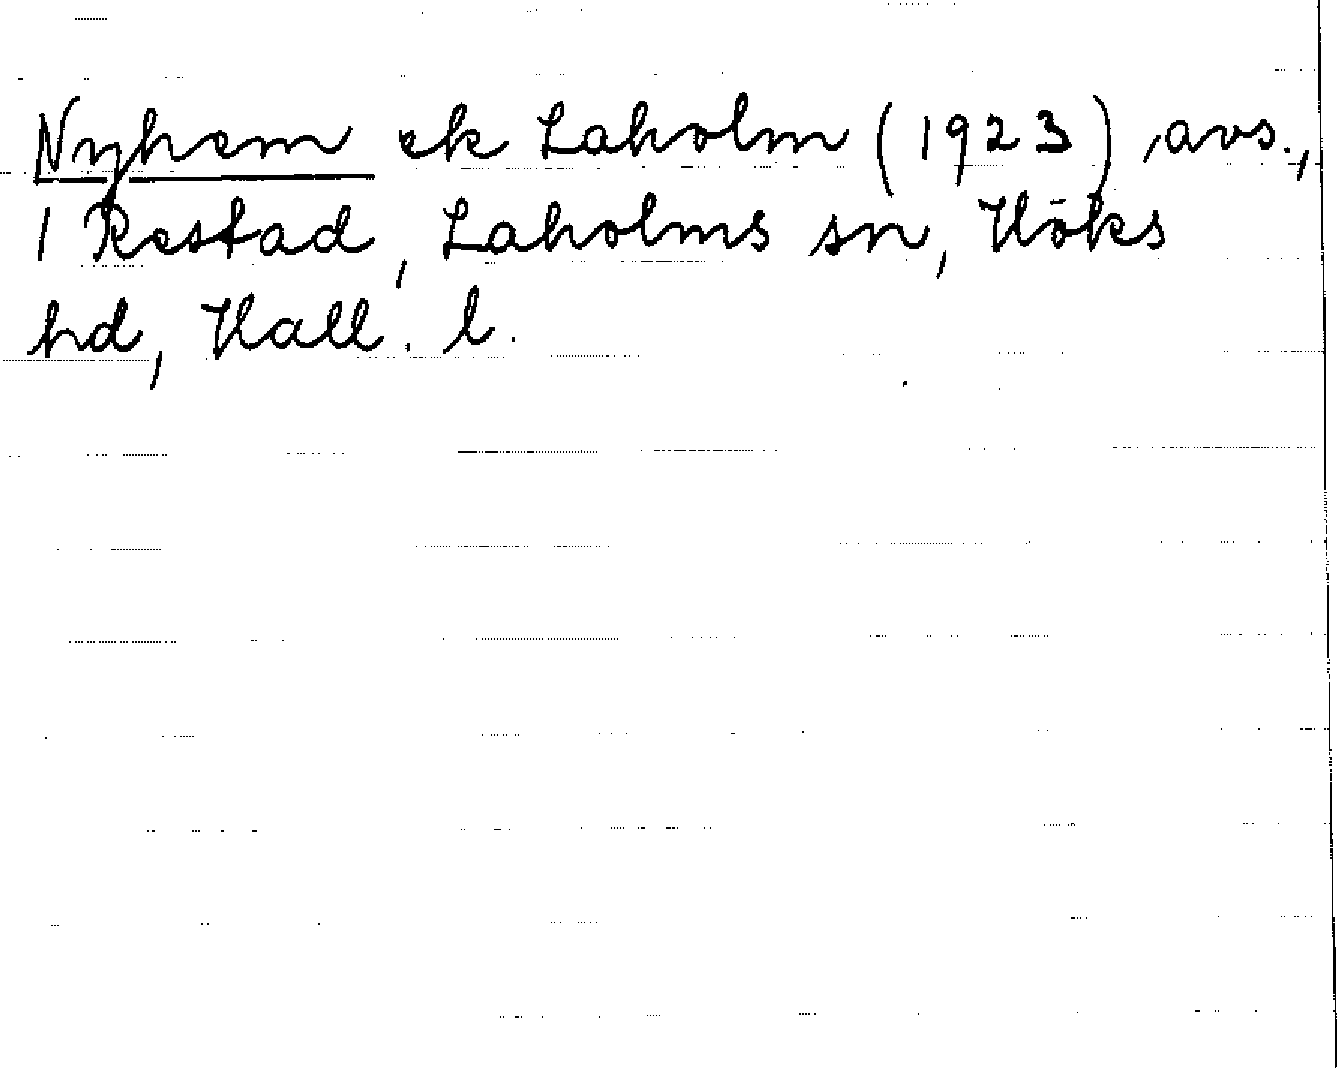 Nyhem ek Laholm (1923), avs.,
1 Restad, Laholms sn, Höks
hd, Hall. l.